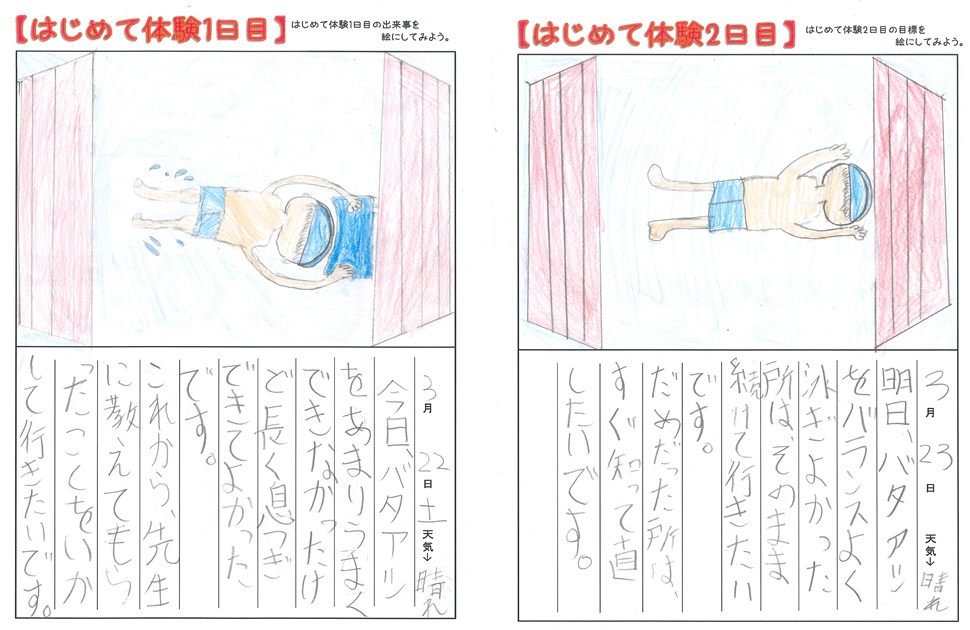 【はじめて体験1日目】
はじめて体験1日目の出来事を
絵にしてみよう。
3月22日土天気→晴れ
今日、バタアシ
をあまりうまく
できなかったけ
ど長く息つぎ
できてよかった
です。
これから、先生
に教えてもら
ったことをいか
して行きたいです。
【はじめて体験2日目】
はじめて体験2日目の目標を
絵にしてみよう。
3月23日天気→晴れ
明日、バタアシ
をバランスよく
泳ぎよかった
所は、そのまま
続けて行きたい
です。
だめだった所は、
すぐ知って直
したいです。